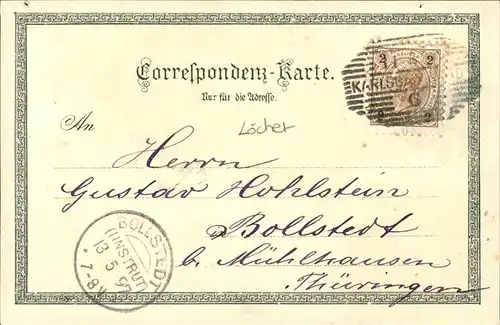 Correspondenz-Karte.
Nur für die Adresse.
An
Löcher
Herrn
Gustav Hohlstein
Bollstedt
b. Mühlhausen
Thüringen
2 2
2 2
BOLLSTEDT
(UNSTRUT)
13 5 97
* 7-8V